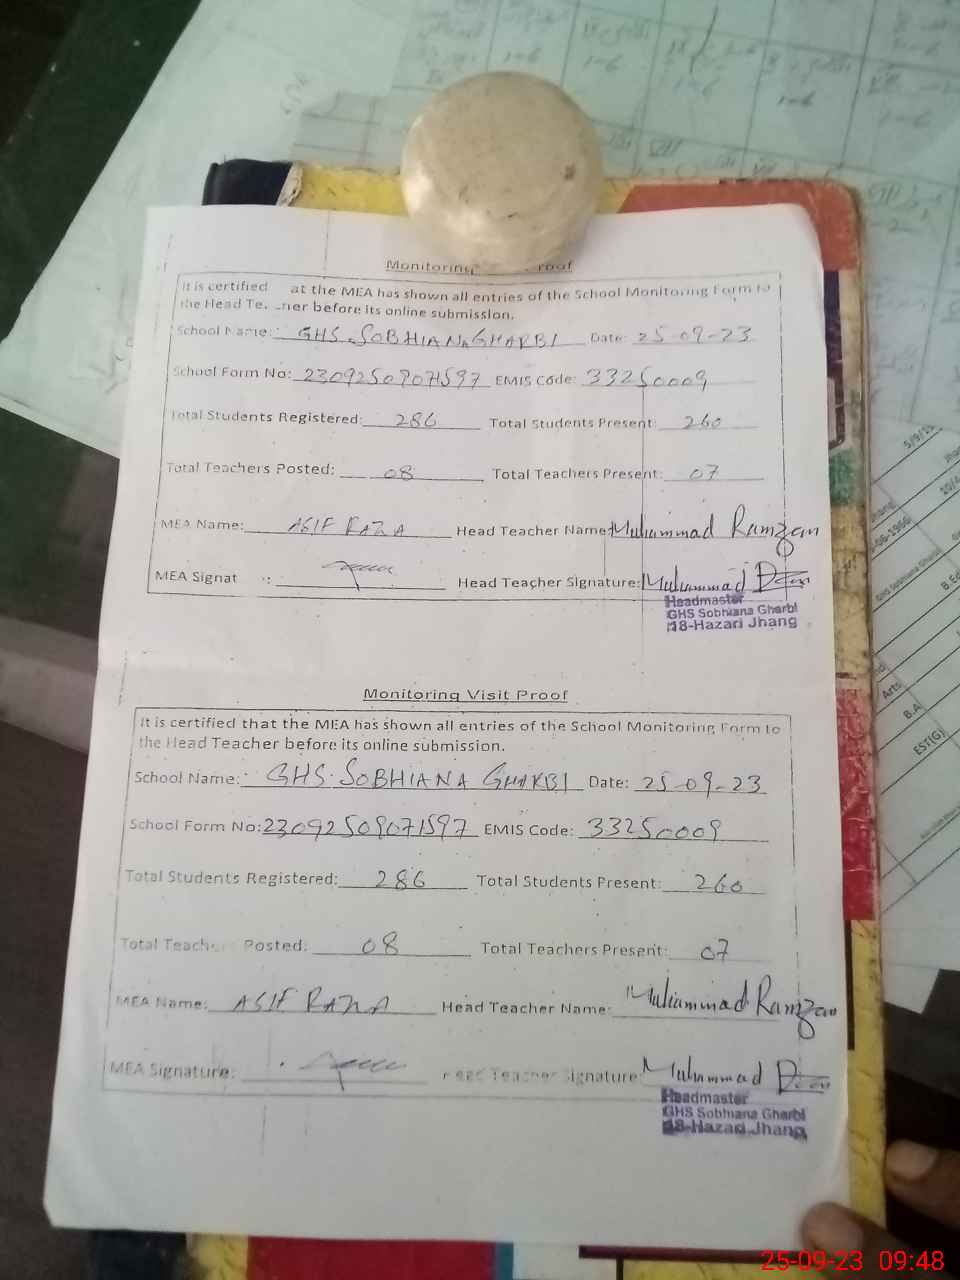 Monitoring roof
It is certified at the MEA has shown all entries of the School Monitoring Form to
the Head Te. .ner before its online submission.
School Name: GHS SOBHIANA GHARBI Date: 25-09-23
School Form No: 23092509071597 EMIS Code: 33250009
Total Students Registered: 286 Total Students Present: 260
Total Teachers Posted: 08 Total Teachers Present: 07
MEA Name: ASIF RAZA Head Teacher Name: Muhammad Ramzan
MEA Signat : Head Teacher Signature: Muhammad
Headmaster
GHS Sobhiana Gharbi
18-Hazari Jhang
Monitoring Visit Proof
It is certified that the MEA has shown all entries of the School Monitoring Form to
the Head Teacher before its online submission.
School Name: GHS SOBHIANA GHARBI Date: 25-09-23
School Form No: 23092509071597 EMIS Code: 33250009
Total Students Registered: 286 Total Students Present: 260
Total Teachers Posted: 08 Total Teachers Present: 07
MEA Name: ASIF RAZA Head Teacher Name: Muhammad Ramzan
MEA Signature: Head Teacher Signature: Muhammad
Headmaster
GHS Sobhiana Gharbi
18-Hazari Jhang
B.A
EST(G)
Arts
25-09-23 09:48